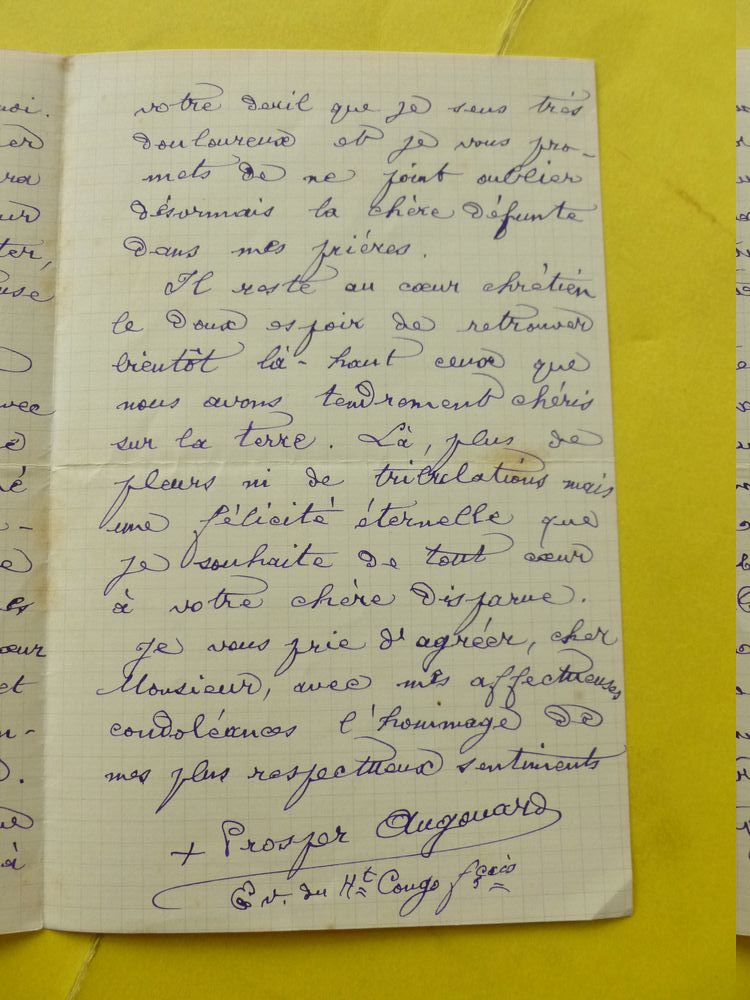 votre deuil que je sens très
douloureux et je vous pro-
mets de ne point oublier
désormais la chère défunte
dans mes prières.
Il reste au cœur chrétien
le doux espoir de retrouver
bientôt là-haut ceux que
nous avons tendrement chéris
sur la terre. Là, plus de
pleurs ni de tribulations mais
une félicité éternelle que
je souhaite de tout cœur
à votre chère disparue.
Je vous prie d'agréer, cher
Monsieur, avec mes affectueuses
condoléances l'hommage de
mes plus respectueux sentiments
+ Prosper Augouard
Ev. du Ht Congo fçais